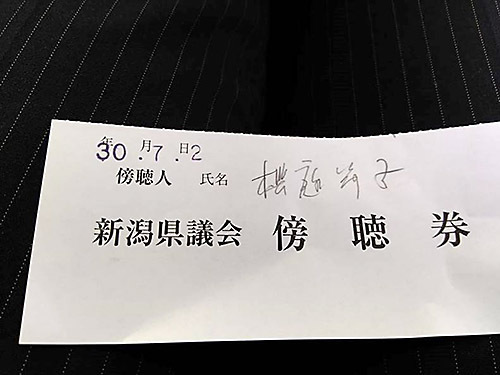 年 月 日
30.7.2
傍聴人 氏名
新潟県議会 傍聴券